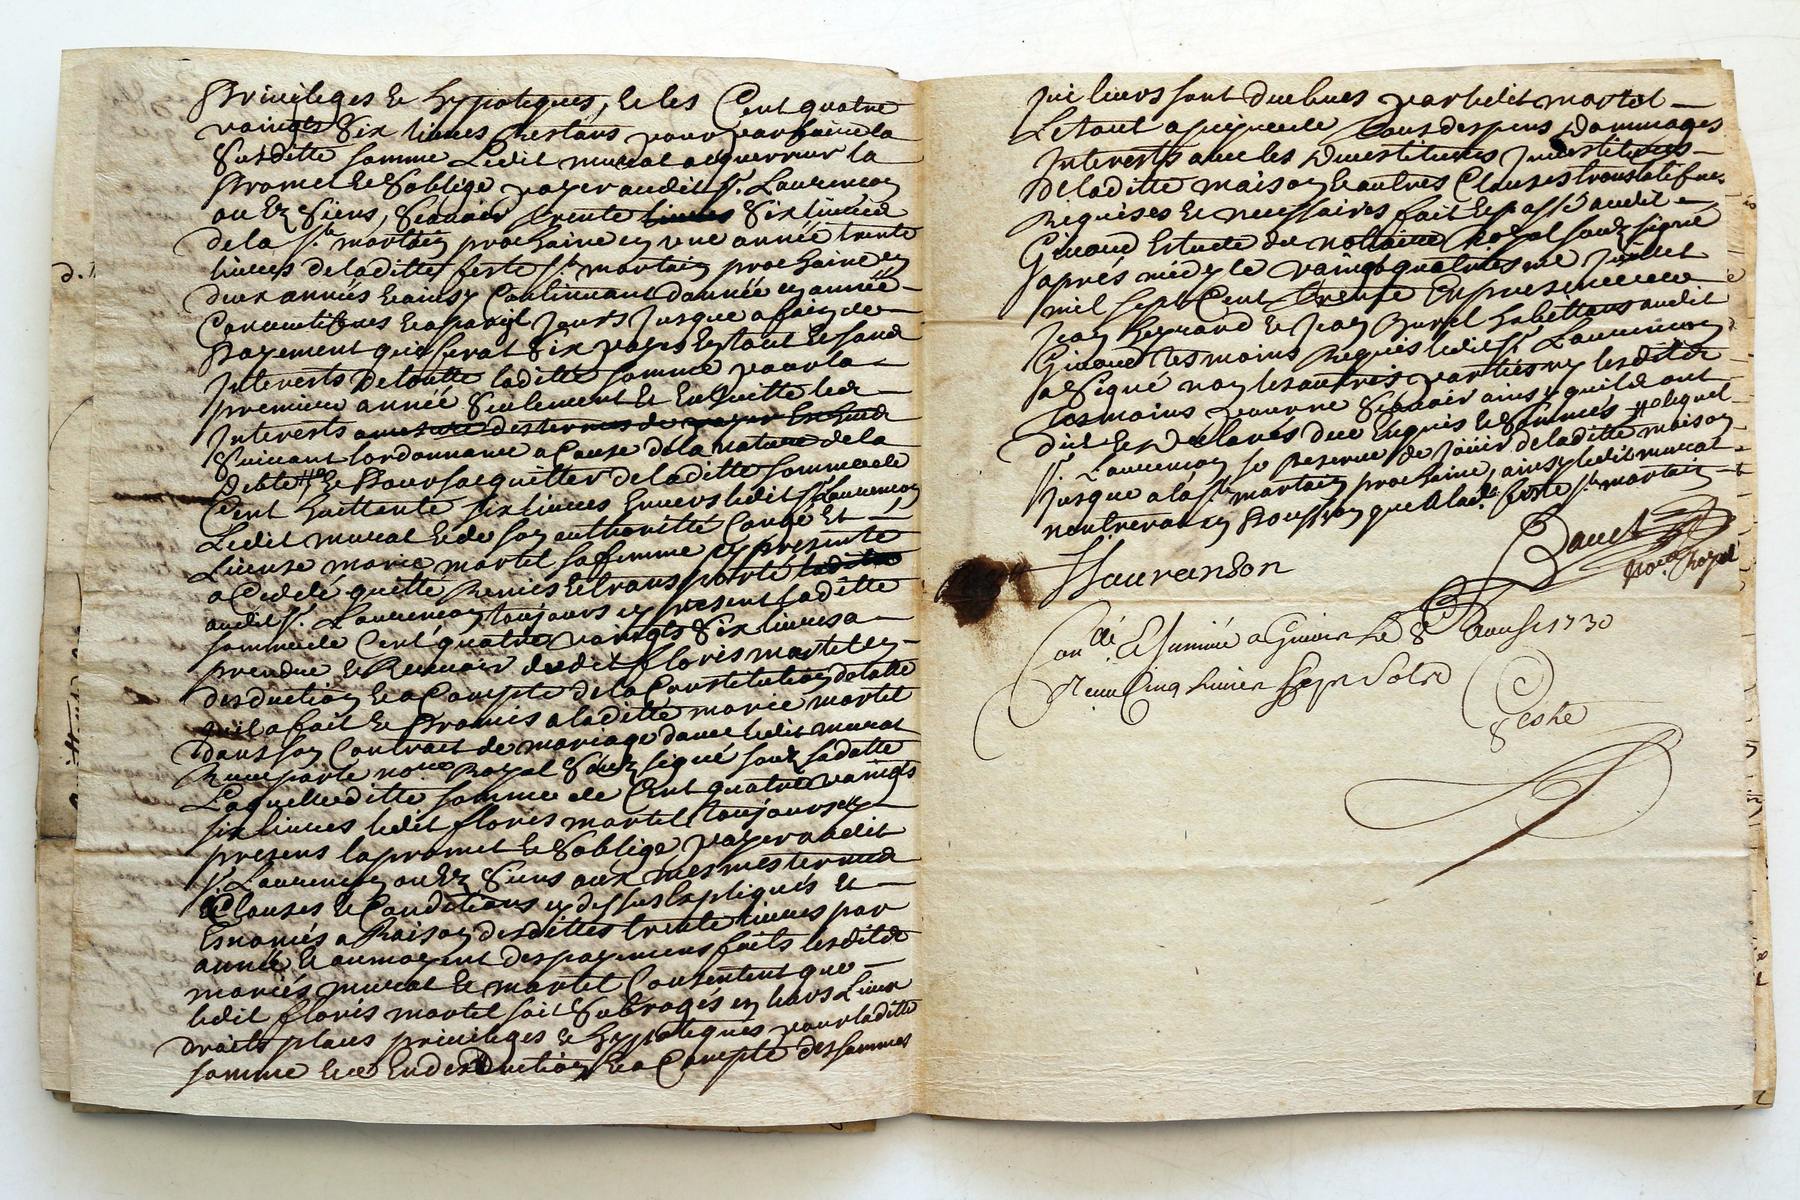 Privileges & hypoteques, & les Cent quatre
vaingts Six livres Restans pour parfaire la
Susditte somme Ledit murat acquerreur la
Promet & s'oblige payer audit Sr. Laurencon
ou Ez Siens, Scavoir trente Six livres
de la St. martain prochaine en une année trente
livres de laditte feste St. martain prochaine en
deux années & ainsy Continuant d'année en année
Consecutives & a pareil Jours Jusque a fain de
Payement qui serat Six payes En tout & sans
Interests de toutte laditte somme pour la
premiere année Seulement Et En Suitte les
Interests
Suivant l'ordonnance a Cause de la nature de la
debte & Pour s'acquitter de laditte somme de
Cent huittante six livres Envers ledit Sr. Laurencon
Ledit murat & de son authorité Congé Et
License marie martel sa femme cy presente
a Cedé quitté Remis & transporté
audit Sr. Laurencon toujours cy present laditte
somme de Cent quatre vaingts Six livres a
prendre & Recevoir dudit floris martel en
desduction & a Compte de la Constitution de
qu'il a fait & Promis a laditte marie martel
dans son Contrait de mariage d'avec ledit murat
Receu par le nore Royal Souz signé souz sa datte
Laquelle ditte somme de Cent quatre vaingts
six livres ledit floris martel toujours cy
present la promet & s'oblige payer audit
Sr. Laurencon ou Ez Siens aux mesmes termes
Clauses & Conditions cy dessus Expliqués Et
Enoncés a Raison desdittes trente livres par
année & au moyent des payemens faits lesdits
mariés murat & martel Consentent que
ledit floris martel soit Subrogés en leurs Lieux
droits places privileges & hypoteques pour laditte
somme & ce En desduction & a Compte des sommes
qui leurs sont duehues par ledit martel
Le tout a peyne de tous despens Dommages
Interests avec les Devestitures Investitures
de laditte maison & autres Clauses translatifves
Requises & necessaires fait & passé audit
Givors Estude du nottaire Royal souz signé
apres midy le vaingt quatriesme Juillet
mil sept Cent Trente En presence de
Jean & Jean habittans audit
Givors tesmoins Requis ledit Sr. Laurencon
a Signé non les autres parties ny lesdits
tesmoins pour ne Scavoir ainsy qu'ils ont
dit & Declarés de ce Enquis & Sommés lequel
Sr. Laurencon se Reserve de Jouir de laditte maison
Jusque a la St. martain prochaine, ainsy ledit murat
n'entrerat en Possession que a lad. feste St. martain
Laurandon
nore. Royal
Con.lle & Insinué a Givors Le 8 Aoust 1730
Receu Cinq Livres Sept Sols